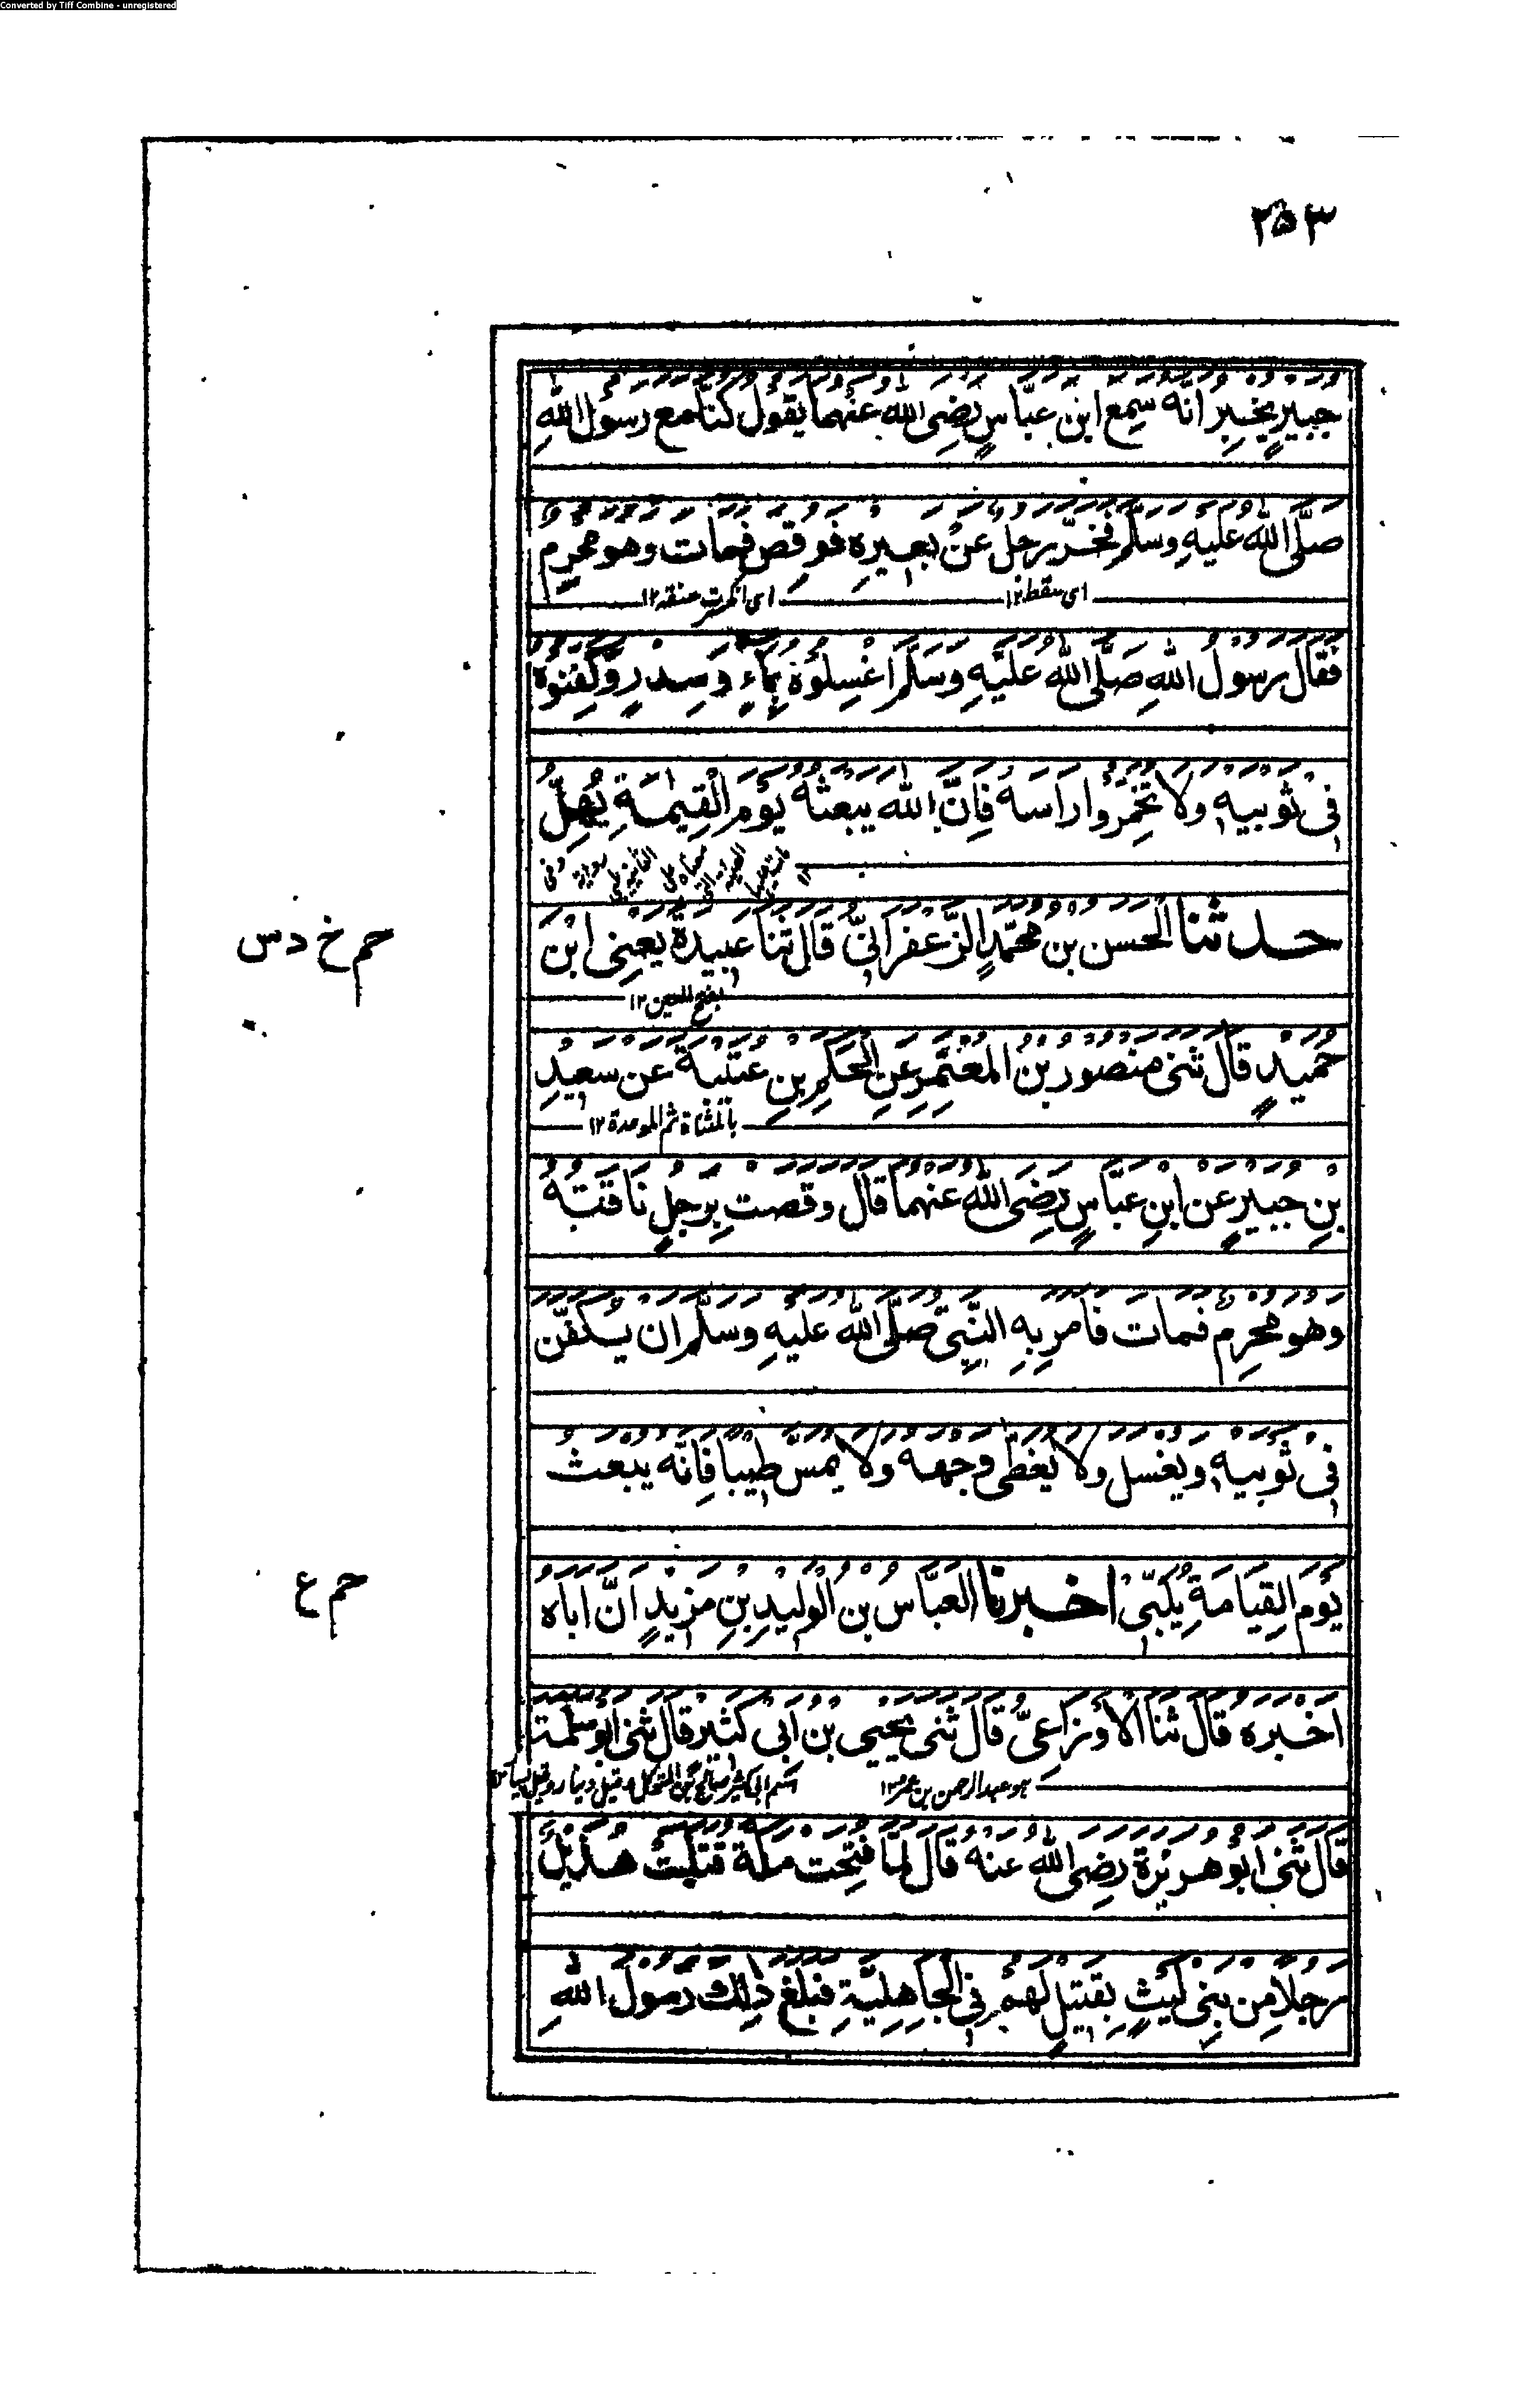 Converted by Tiff Combine - unregistered
۲۵۳
جبيرٍ يخبر انّه سمع ابن عبّاسٍ رَضِىَ الله عنهما يقول كنّا مع رسول اللهِ
صلّى الله عليهِ وسلّم فخرّ رجل عن بعيرِه فوقِص فمات وهو محرِم
اى سقط ۱۲ اى انكسرت عنقه ۱۲
فقال رسول اللهِ صَلَّى الله عَليهِ وسَلّم اغسِلوه بماءٍ وسِدرٍ وكفِّنوه
فى ثوبيهِ ولا تخمّروا راسه فاِنّ الله يبعثه يوم القِيٰمةِ يُهِلّ
حم خ د س
حدثنا الحسن بن محمّدٍ الزعفرانىّ قال ثنا عبيدة يعنِى ابن
بفتح العين ۱۲
حُمَيدٍ قال ثنى منصور بن المعتمِرِ عنِ الحكمِ بنِ عتيبة عن سعيدِ
بالمثناة ثم الموحدة ۱۲
بنِ جبيرٍ عن ابنِ عبّاسٍ رضِى الله عنهما قال وقصت بِرجلٍ ناقته
وهو محرِم فمات فامر بِهِ النّبِىّ صلّى الله عليهِ وسلّم ان يكفّن
فى ثوبيهِ ويغسل ولا يغطّى وجهه ولا يمسّ طيبا فاِنّه يبعث
حم ع
يوم القِيامةِ يلبّى اخبرنا العبّاس بن الوليدِ بنِ مزيدٍ انّ اباه
اخبره قال ثنا الاوزاعىّ قال ثنى يحيى بن ابى كثير قال ثنى ابو سلمة
هو عبد الرحمن بن عمرو ۱۲ اسم ابى كثير صالح بن المتوكل وقيل دينار وقيل
قال ثنى ابو هريرة رضِى الله عنه قال لمّا فتِحت مكّة قتلت هذيل
رجلًا مِن بنِى ليثٍ بِقتيلٍ لهم فى الجاهِليّةِ فبلغ ذٰلِك رسول اللهِ